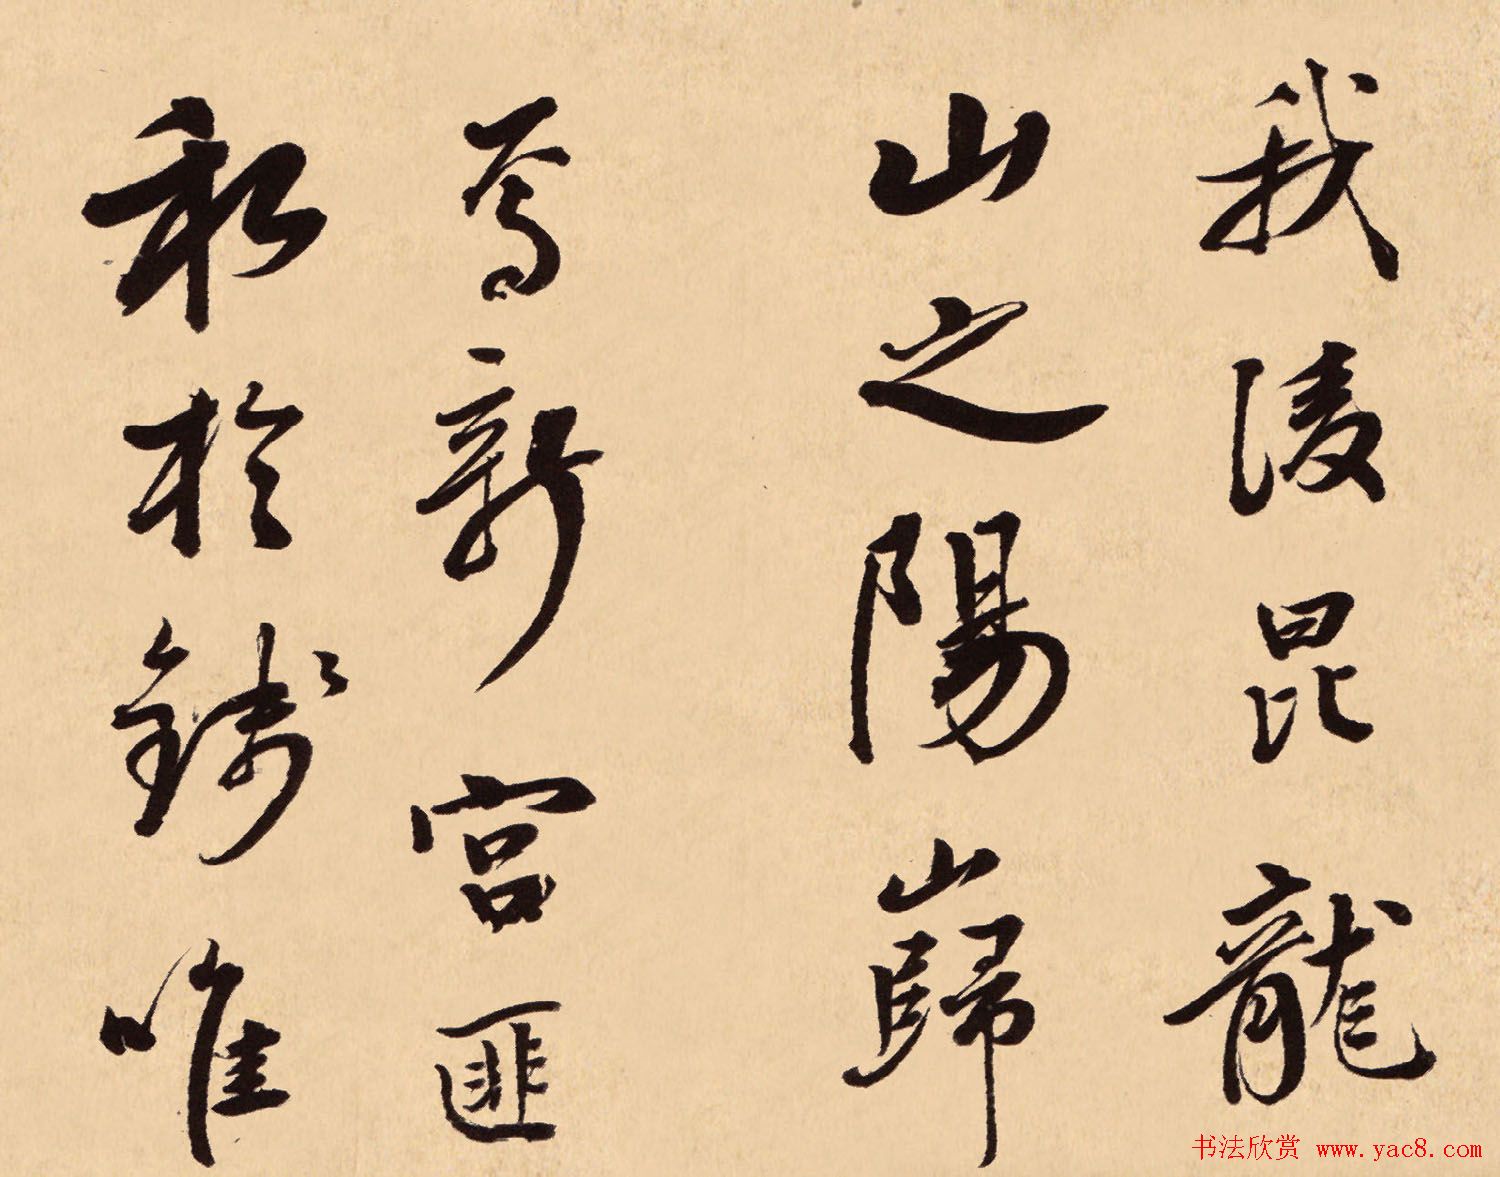 我淩昆龍
山之陽歸
焉新宮匪
私於錢唯
书法欣赏 www.yac8.com